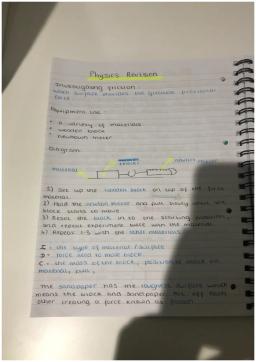 Physics Revision
Investigating friction
which surface provides the greatest frictional
force
Equipment list:
• a variety of materials
• wooden block
• newton meter
Diagram:
wooden
block
newton meter
material
1) Set up the wooden block on top of the first
material.
2) Hold the newton meter and pull slowly until the
block starts to move
3) Reset the block in to the starting position,
and repeat experiment twice with the material
4) Repeat 1-3 with the other materials
I = the type of material / surface
D = force need to move block
C = the mass of the block,
material,
The sandpaper has the roughest surface which
means the block and sandpaper rub off each
other creating a force known as friction.